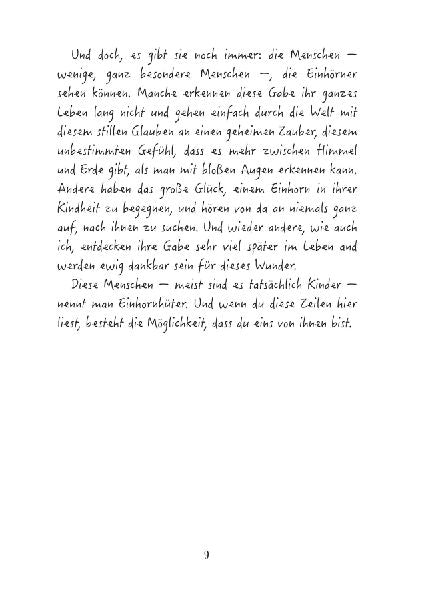 Und doch, es gibt sie noch immer: die Menschen –
wenige, ganz besondere Menschen –, die Einhörner
sehen können. Manche erkennen diese Gabe ihr ganzes
Leben lang nicht und gehen einfach durch die Welt mit
diesem stillen Glauben an einen geheimen Zauber, diesem
unbestimmten Gefühl, dass es mehr zwischen Himmel
und Erde gibt, als man mit bloßen Augen erkennen kann.
Andere haben das große Glück, einem Einhorn in ihrer
Kindheit zu begegnen, und hören von da an niemals ganz
auf, nach ihnen zu suchen. Und wieder andere, wie auch
ich, entdecken ihre Gabe sehr viel später im Leben und
werden ewig dankbar sein für dieses Wunder.
Diese Menschen – meist sind es tatsächlich Kinder –
nennt man Einhornhüter. Und wenn du diese Zeilen hier
liest, besteht die Möglichkeit, dass du eins von ihnen bist.
9